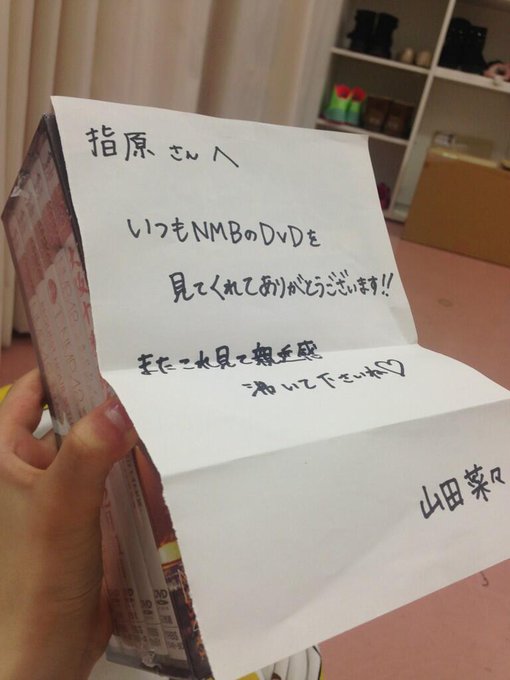 指原さんへ
いつもNMBのDVDを
見てくれてありがとうございます!!
またこれ見て親近感
沸いて下さいね♡
山田菜々
DVD
DVD
DVD